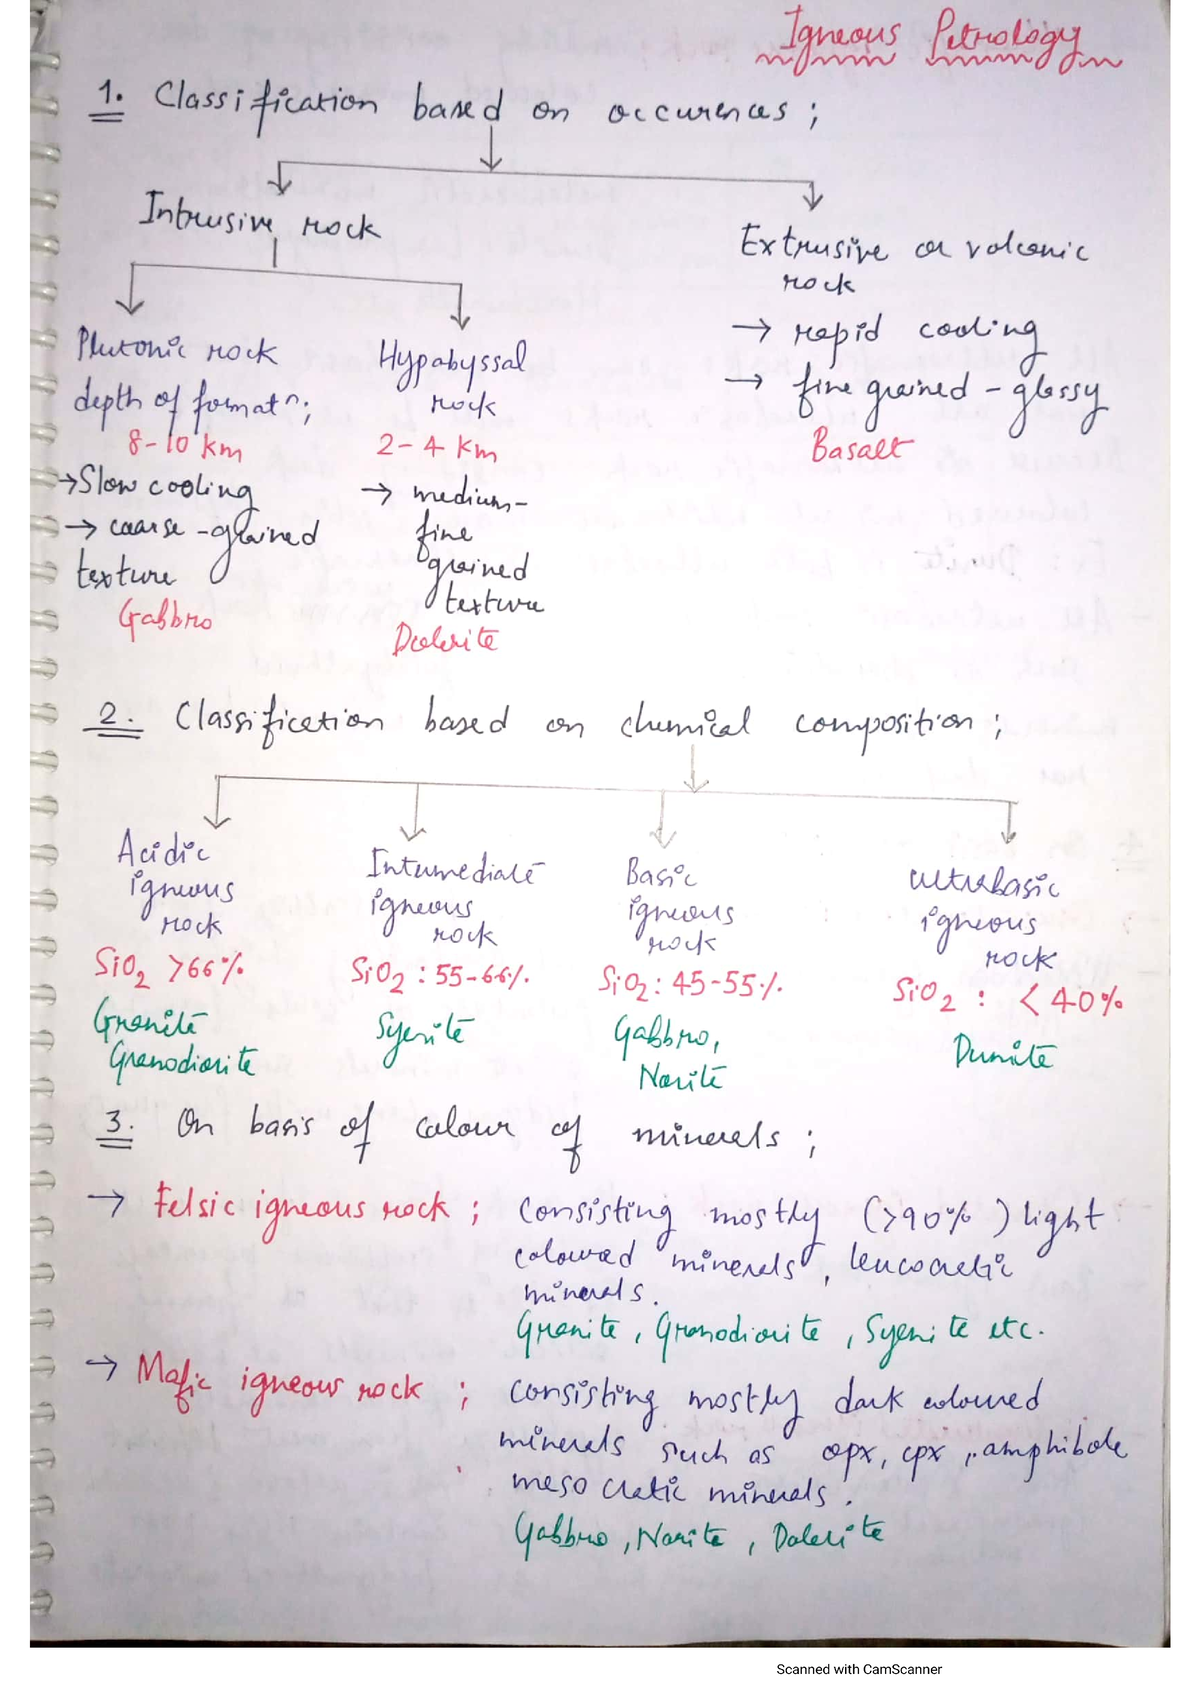 Igneous Petrology
1. Classification based on occurences ;
Intrusive rock
Extrusive or volcanic
rock
→ rapid cooling
→ fine grained - glassy
Basalt
Plutonic rock
depth of formatⁿ;
8-10 km
→ Slow cooling
→ coarse - grained
texture
Gabbro
Hypabyssal
rock
2-4 km
→ medium-
fine
grained
texture
Dolerite
2. Classification based on chemical composition ;
Acidic
igneous
rock
SiO₂ >66%
Granite
Granodiorite
Intermediate
igneous
rock
SiO₂ : 55-66%
Syenite
Basic
igneous
rock
SiO₂: 45-55%
Gabbro,
Norite
Ultrabasic
igneous
rock
SiO₂ : < 40%
Dunite
3. On basis of colour of minerals ;
→ Felsic igneous rock ; consisting mostly (>90%) light
coloured minerals, leucocratic
minerals.
Granite, Granodiorite, Syenite etc.
→ Mafic igneous rock ; consisting mostly dark coloured
minerals such as opx, cpx, amphibole
mesocratic minerals.
Gabbro, Norite, Dolerite
Scanned with CamScanner